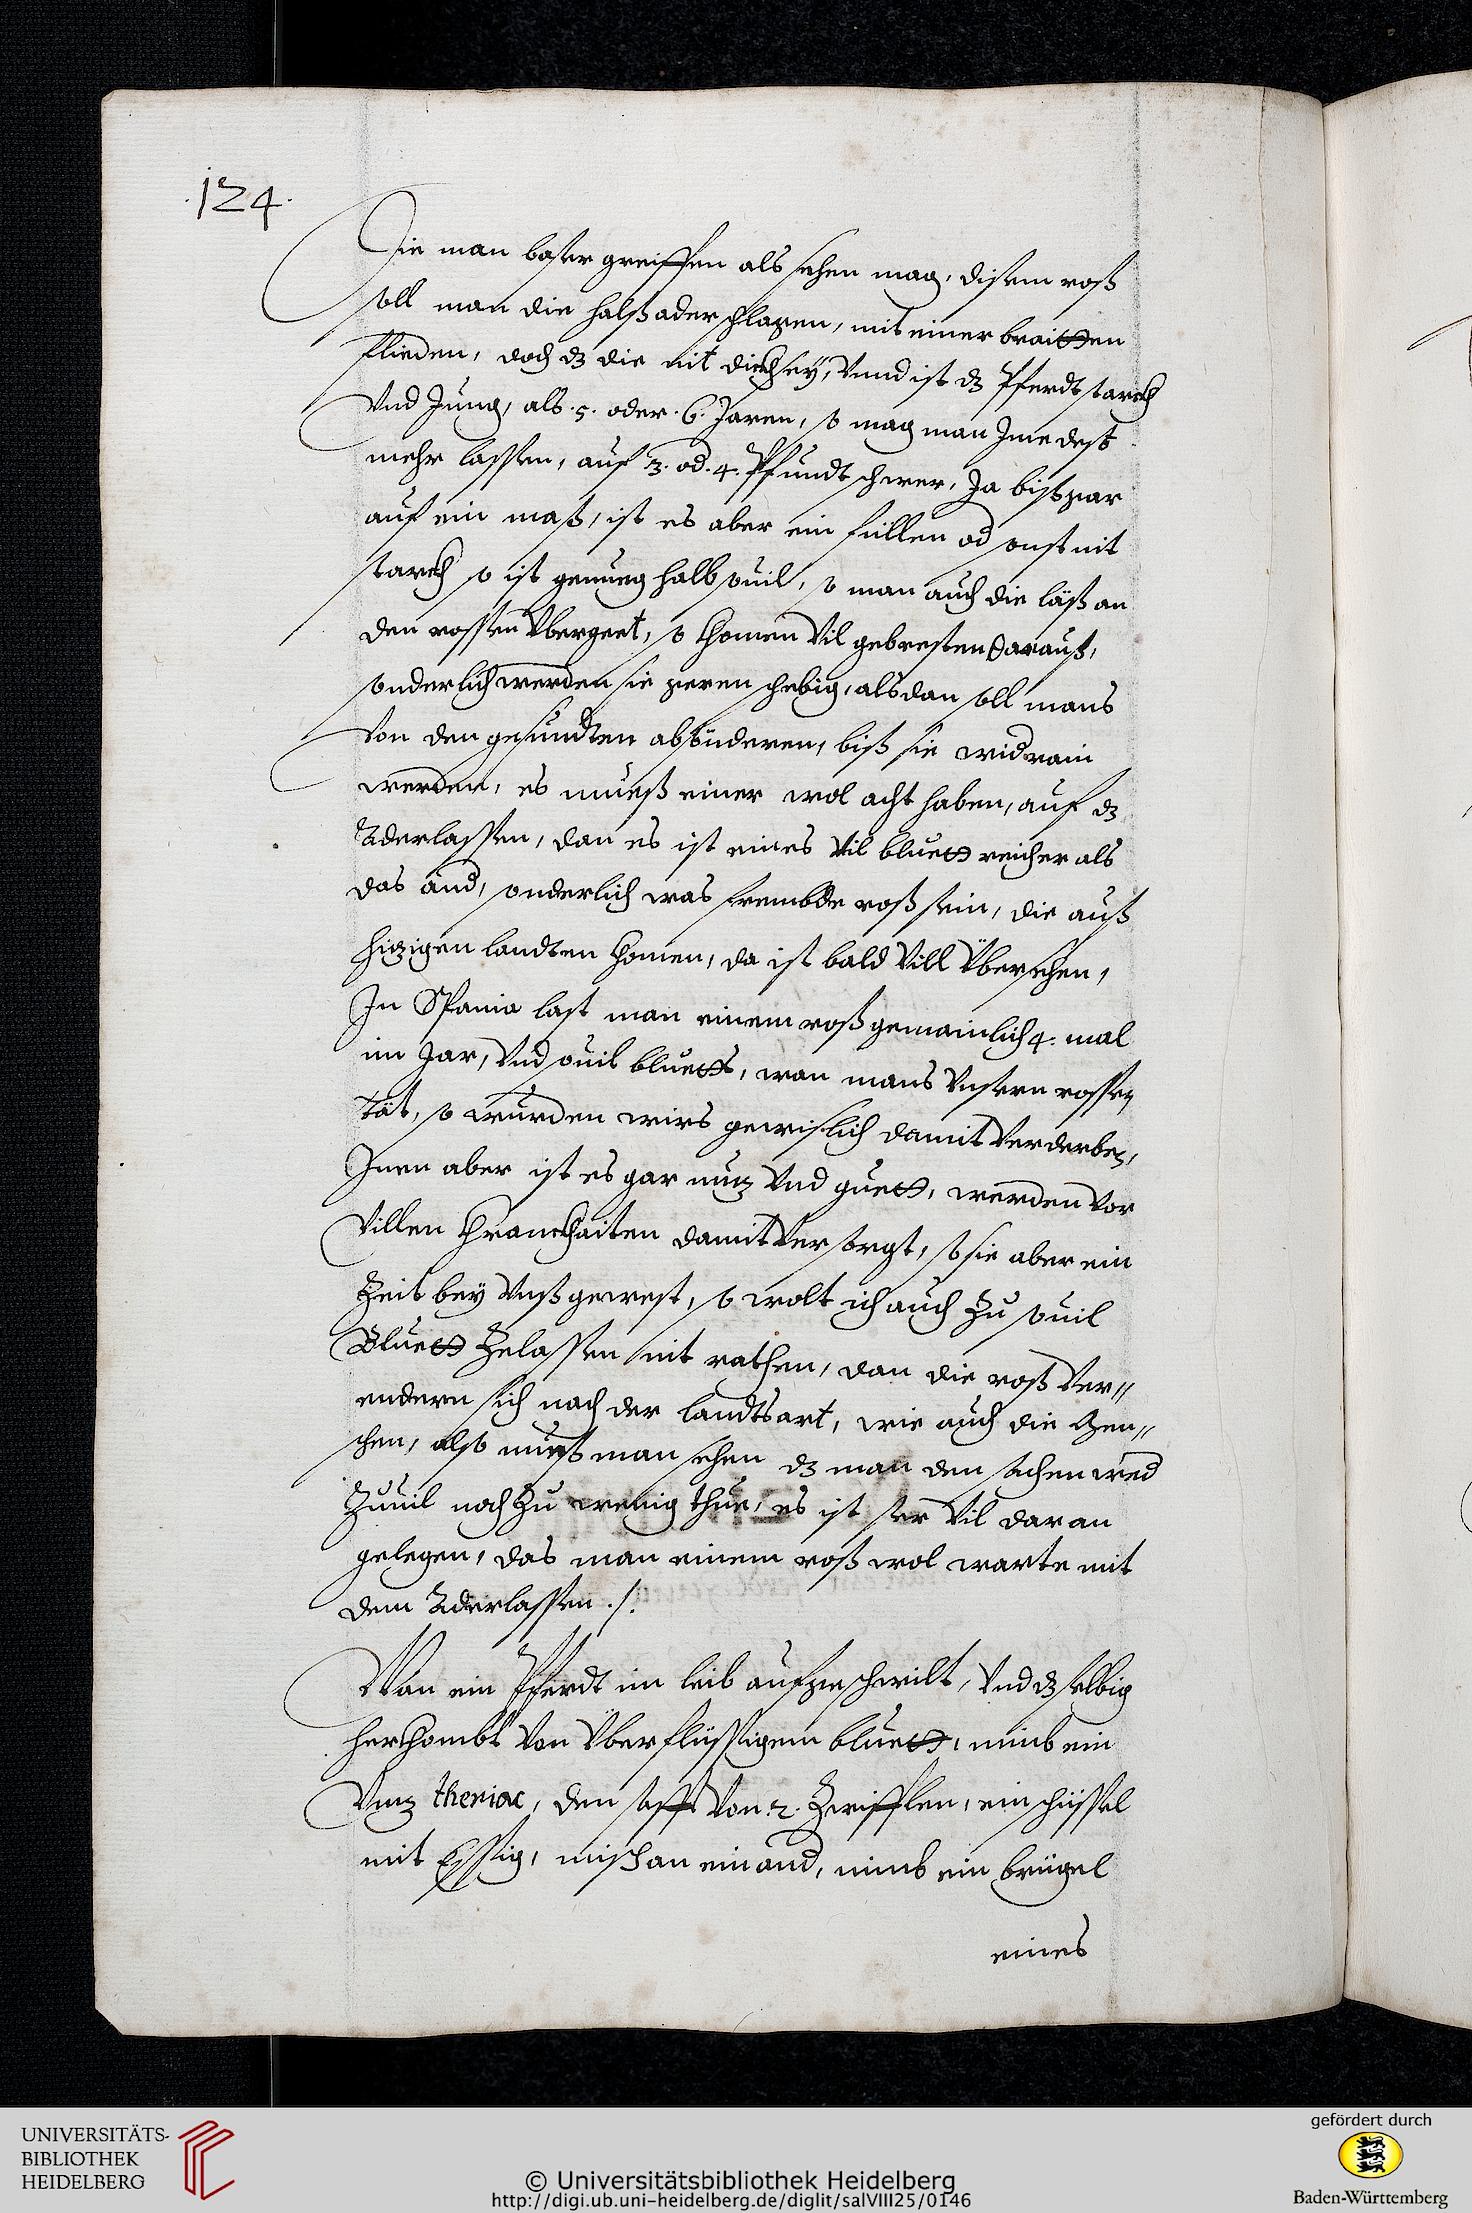 .124.
Die man baster greiffen als sehen mag, disem roß
soll man die halßader schlagen, mit einer braitten
flieden, doch dz die nit dickh sey, Vnnd ist dz Pferdt starckh
Vnd Jung, als .5. oder .6. Jaren, so mag man Jme dest
mehr lassen, auf 3. od. 4. Pfundt schwer, Ja biß gar
auf ein maß, ist es aber ein füllen od sonst nit
starckh so ist genueg halb souil, so man auch die läß an
den rossen Vbergeet, so khomen Vil gebresten darauß,
sonderlich werden sie geren schebig, alsdan soll mans
Von den gesundten absönderen, biß sie wid rain
werden, es mueß einer wol acht haben, auf dz
Aderlassen, dan es ist eines Vil bluett reicher als
das and, sonderlich was frembde roß sein, die auß
hizigen landten khomen, da ist bald Vill Übersehen,
In Spania last man einem roß gemainlich 4. mal
im Jar, Vnd souil bluetts, wan mans Vnsern rossen
tät, so wurden wirs gewislich damit Verderben,
Jnen aber ist es gar nuz Vnd guett, werden Vor
Villen Khranckhaiten damit Versorgt, so sie aber ein
Zeit bey Vnß gewest, so wolt ich auch Zu souil
Bluett Zelassen nit rathen, dan die roß Ver//
endern sich nach der landtsart, wie auch die Men//
schen, also mueß man sehen dz man den sachen wed
Zuuil noch Zu wenig thue, es ist ser Vil daran
gelegen, das man einem roß wol warte mit
dem Aderlassen ./.
Wan ein Pferdt im leib aufgeschwilt, Vnd dz selbig
herkhombt Von Überflüssigem bluett, nimb ein
Vnz theriac, den safft Von 2. Zwifflen, ein schüssel
mit Essig, misch an einand, nimb ein brügel
eines
UNIVERSITÄTS-
BIBLIOTHEK
HEIDELBERG
© Universitätsbibliothek Heidelberg
http://digi.ub.uni-heidelberg.de/diglit/salVIII25/0146
gefördert durch
Baden-Württemberg